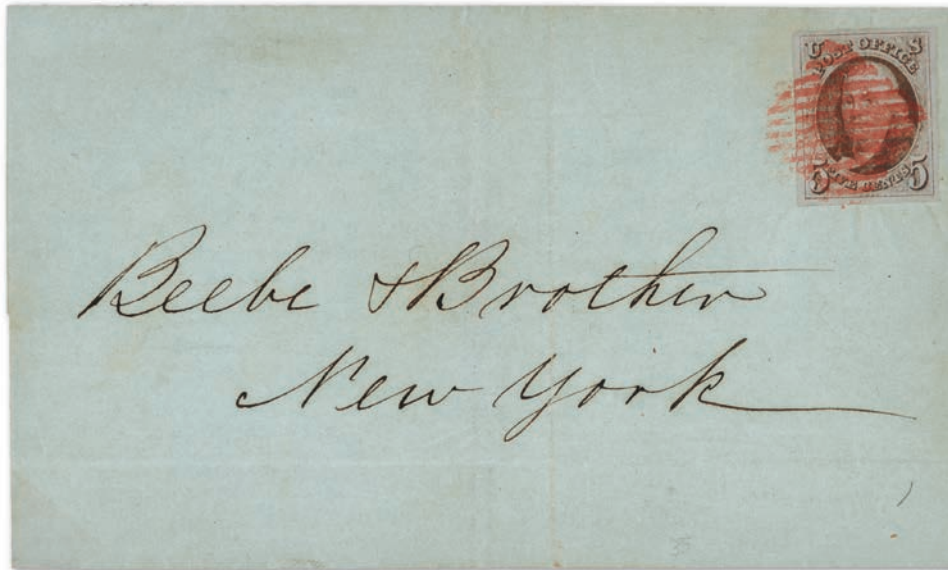 U S
POST OFFICE
5 FIVE CENTS 5
Beebe & Brother
New York